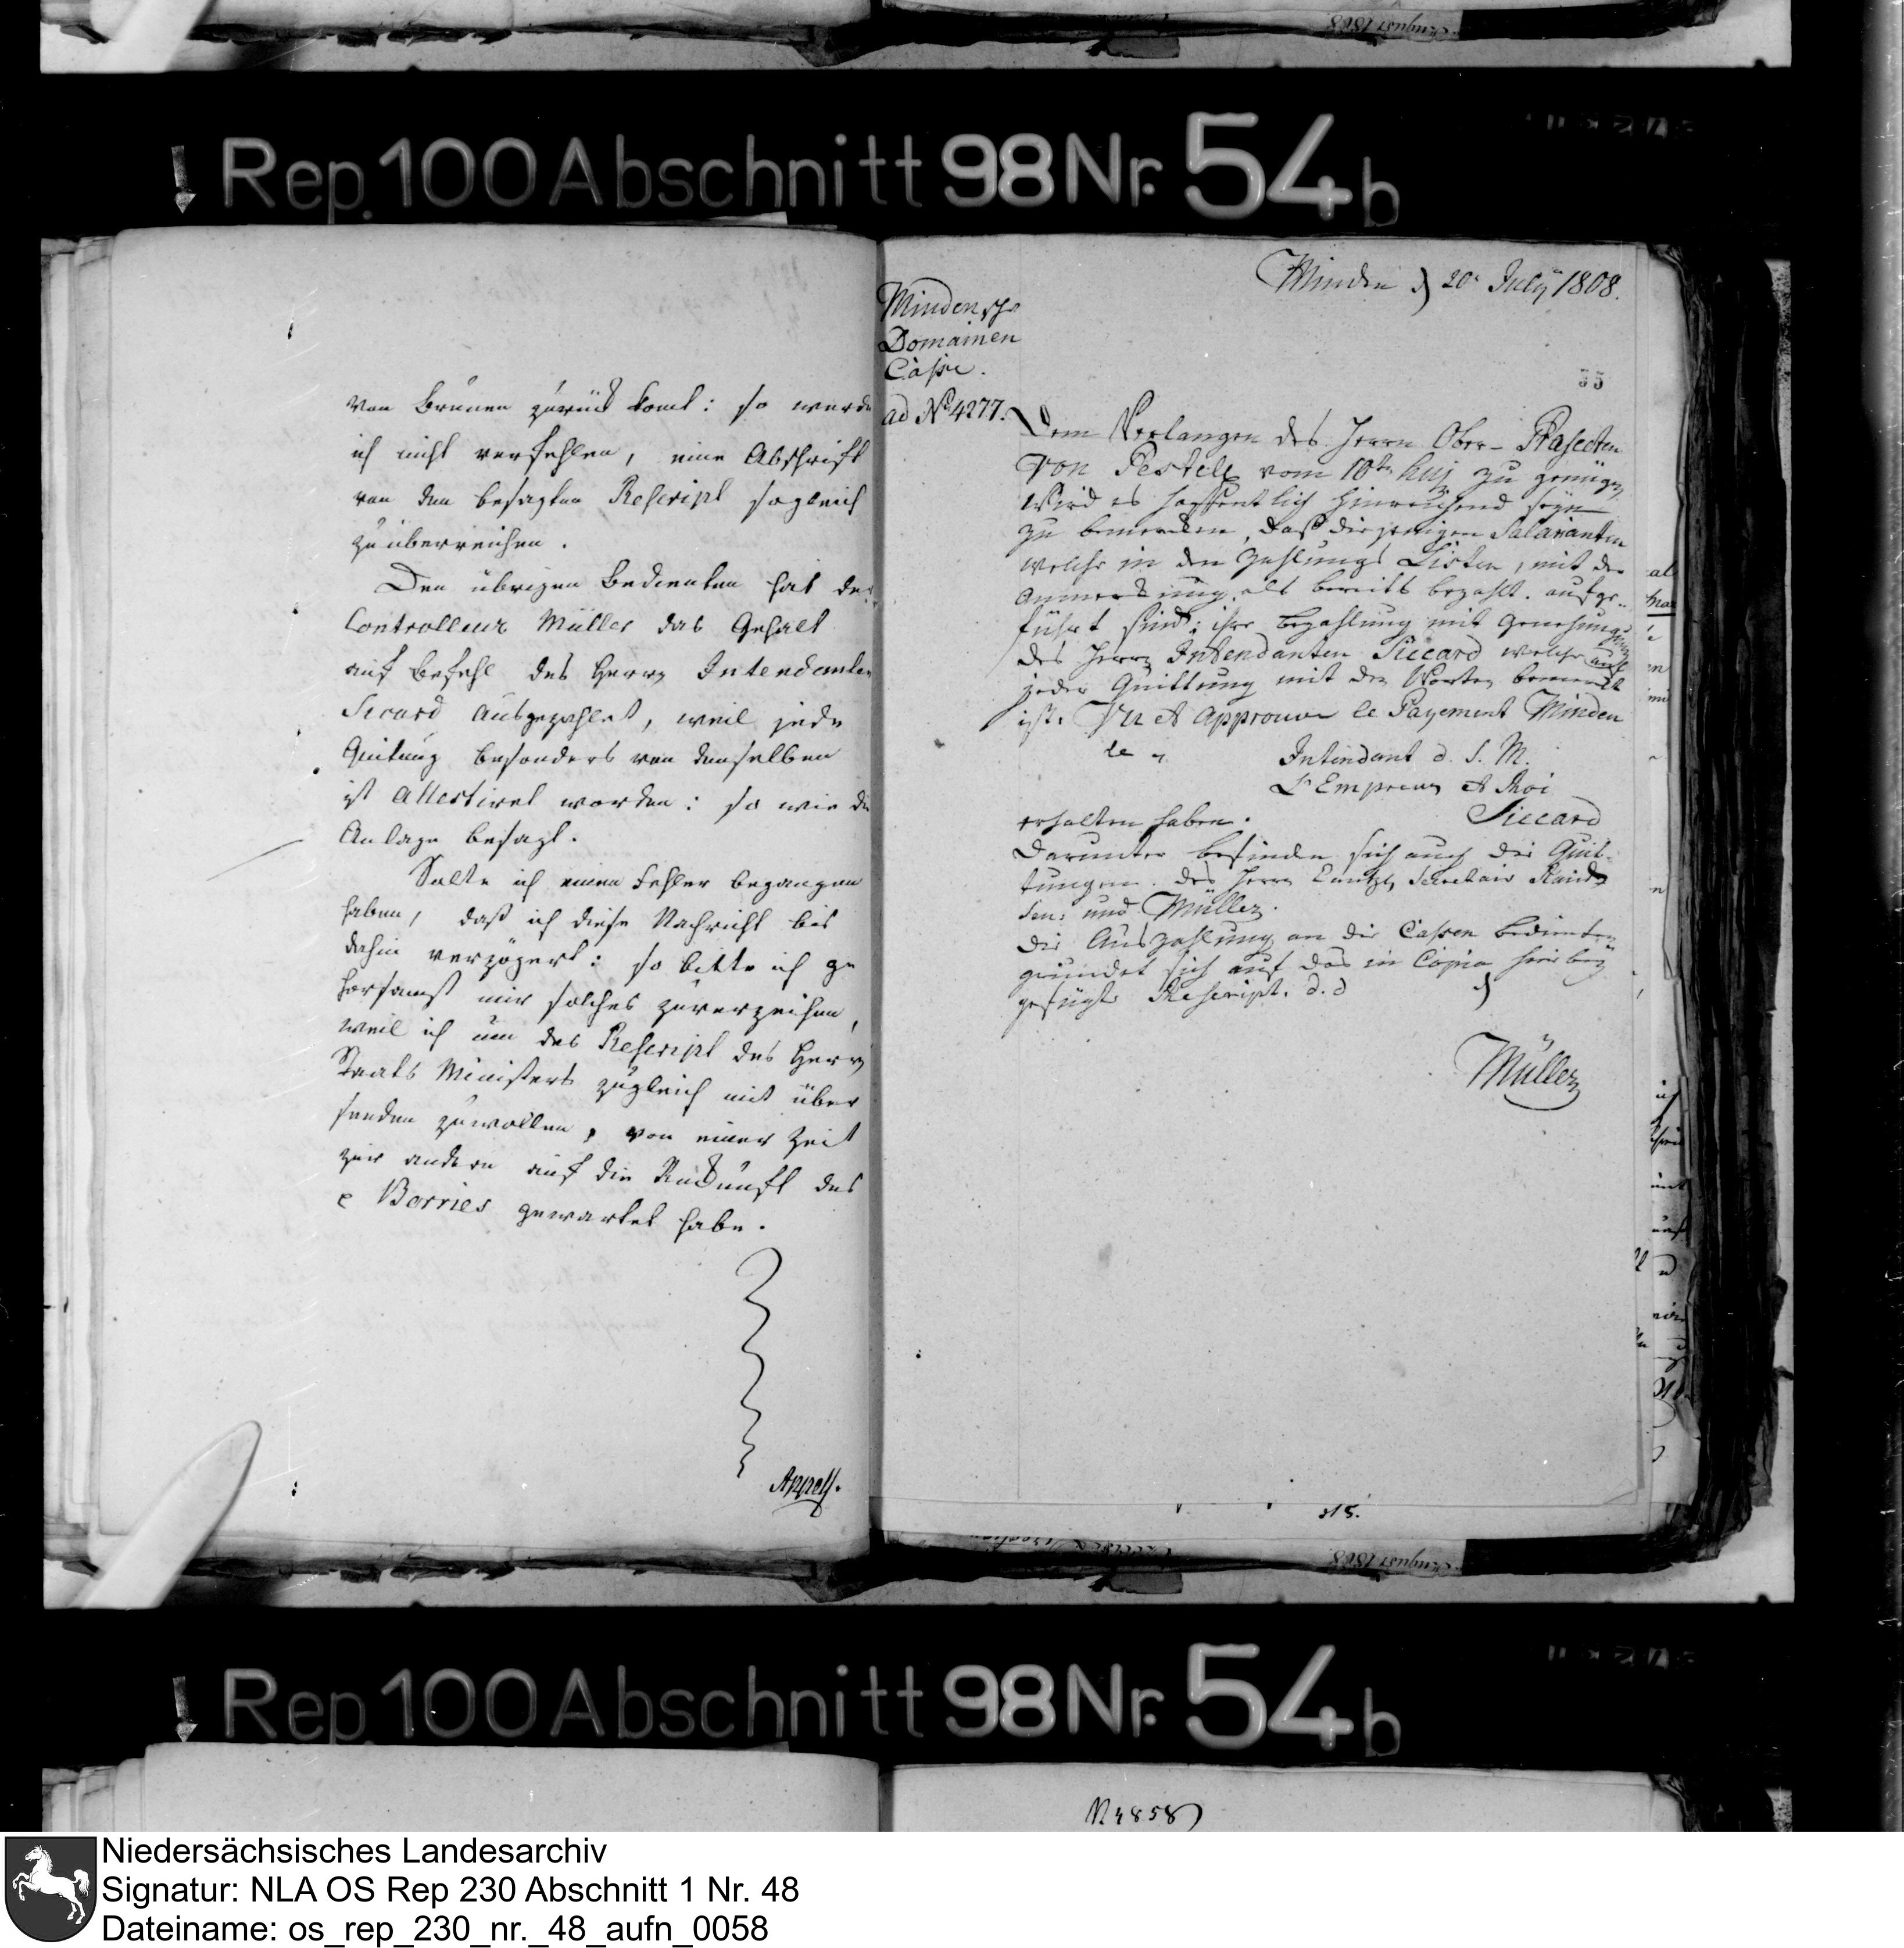 Rep. 100 Abschnitt 98 Nr. 54 b
von Brunen zurück komt: so werde
ich nicht verfehlen, eine Abschrift
von dem besagten Rescript sogleich
zu überreichen.
Den übrigen Bedienten hat der
Controlleur Müller das Gehalt
auf Befehl des Herrn Intendanten
Sicard ausgezahlet, weil jede
Quitung besonders von demselben
ist attestiret worden: so wie die
Anlage besagt.
Solte ich einen Fehler begangen
haben, daß ich diese Nachricht bis
dahin verzögert: so bitte ich ge
horsamst mir solches zuverzeihen,
weil ich um das Rescript des Herrn
Staats Ministers zugleich mit über
senden zuwollen, von einer Zeit
zur andern auf die Rückunft des
c Borries gewartet habe.
Minden d 20n July 1808.
Mindensche
Domainen
Casse.
ad No 4277.
35
Dem Verlangen des Herrn Ober-Præfecten
von Pestell vom 10ten huj zu genügen
wird es hoffentlich hinreichend seyn
zu bemerken, daß diejenigen Salarianten
welche in den Zahlungs Listen, mit der
Anmerkung als bereits bezahlt. aufge-
führt sind; ihre Bezahlung mit Genehmigung
des Herrn Intendanten Siccard welche auf
jeder Quittung mit den Worten bemerkt
ist. Vu et approuve le Payement Minden
le
Intendant d. S. M.
L'Empreur et Roi
Siccard
erhalten haben.
Darunter befinden sich auch die Quit-
tungen des Herrn Cantzl, Secretair
und Müller.
Die Auszahlung an die Cassen Bedienten
gründet sich auf das in Copia hierbey
gefügte Rescript. d. d
Müller
315.
August 1808
Rep. 100 Abschnitt 98 Nr. 54 b
N 4858
Niedersächsisches Landesarchiv
Signatur: NLA OS Rep 230 Abschnitt 1 Nr. 48
Dateiname: os_rep_230_nr._48_aufn_0058